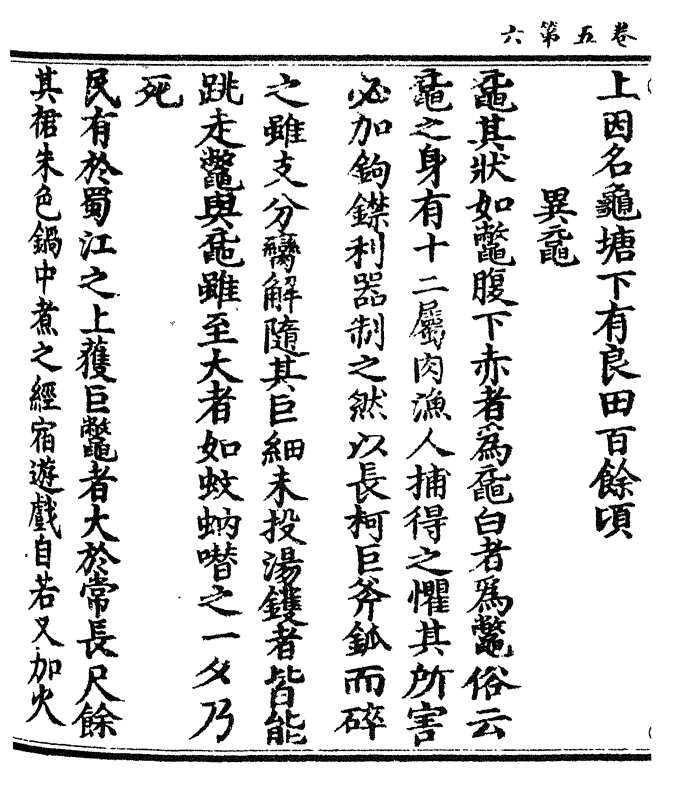 卷五第六
上因名龜塘下有良田百餘頃
異黿
黿其狀如鼈腹下赤者為黿白者為鼈俗云
黿之身有十二屬肉漁人捕得之懼其所害
必加鉤鐷利器制之然以長柯巨斧䤥而碎
之雖支分臠解隨其巨細未投湯鑊者皆能
跳走鼈與黿雖至大者如蚊蚋噆之一夕乃
死
民有於蜀江之上獲巨鼈者大於常長尺餘
其裙朱色鍋中煮之經宿遊戲自若又加火